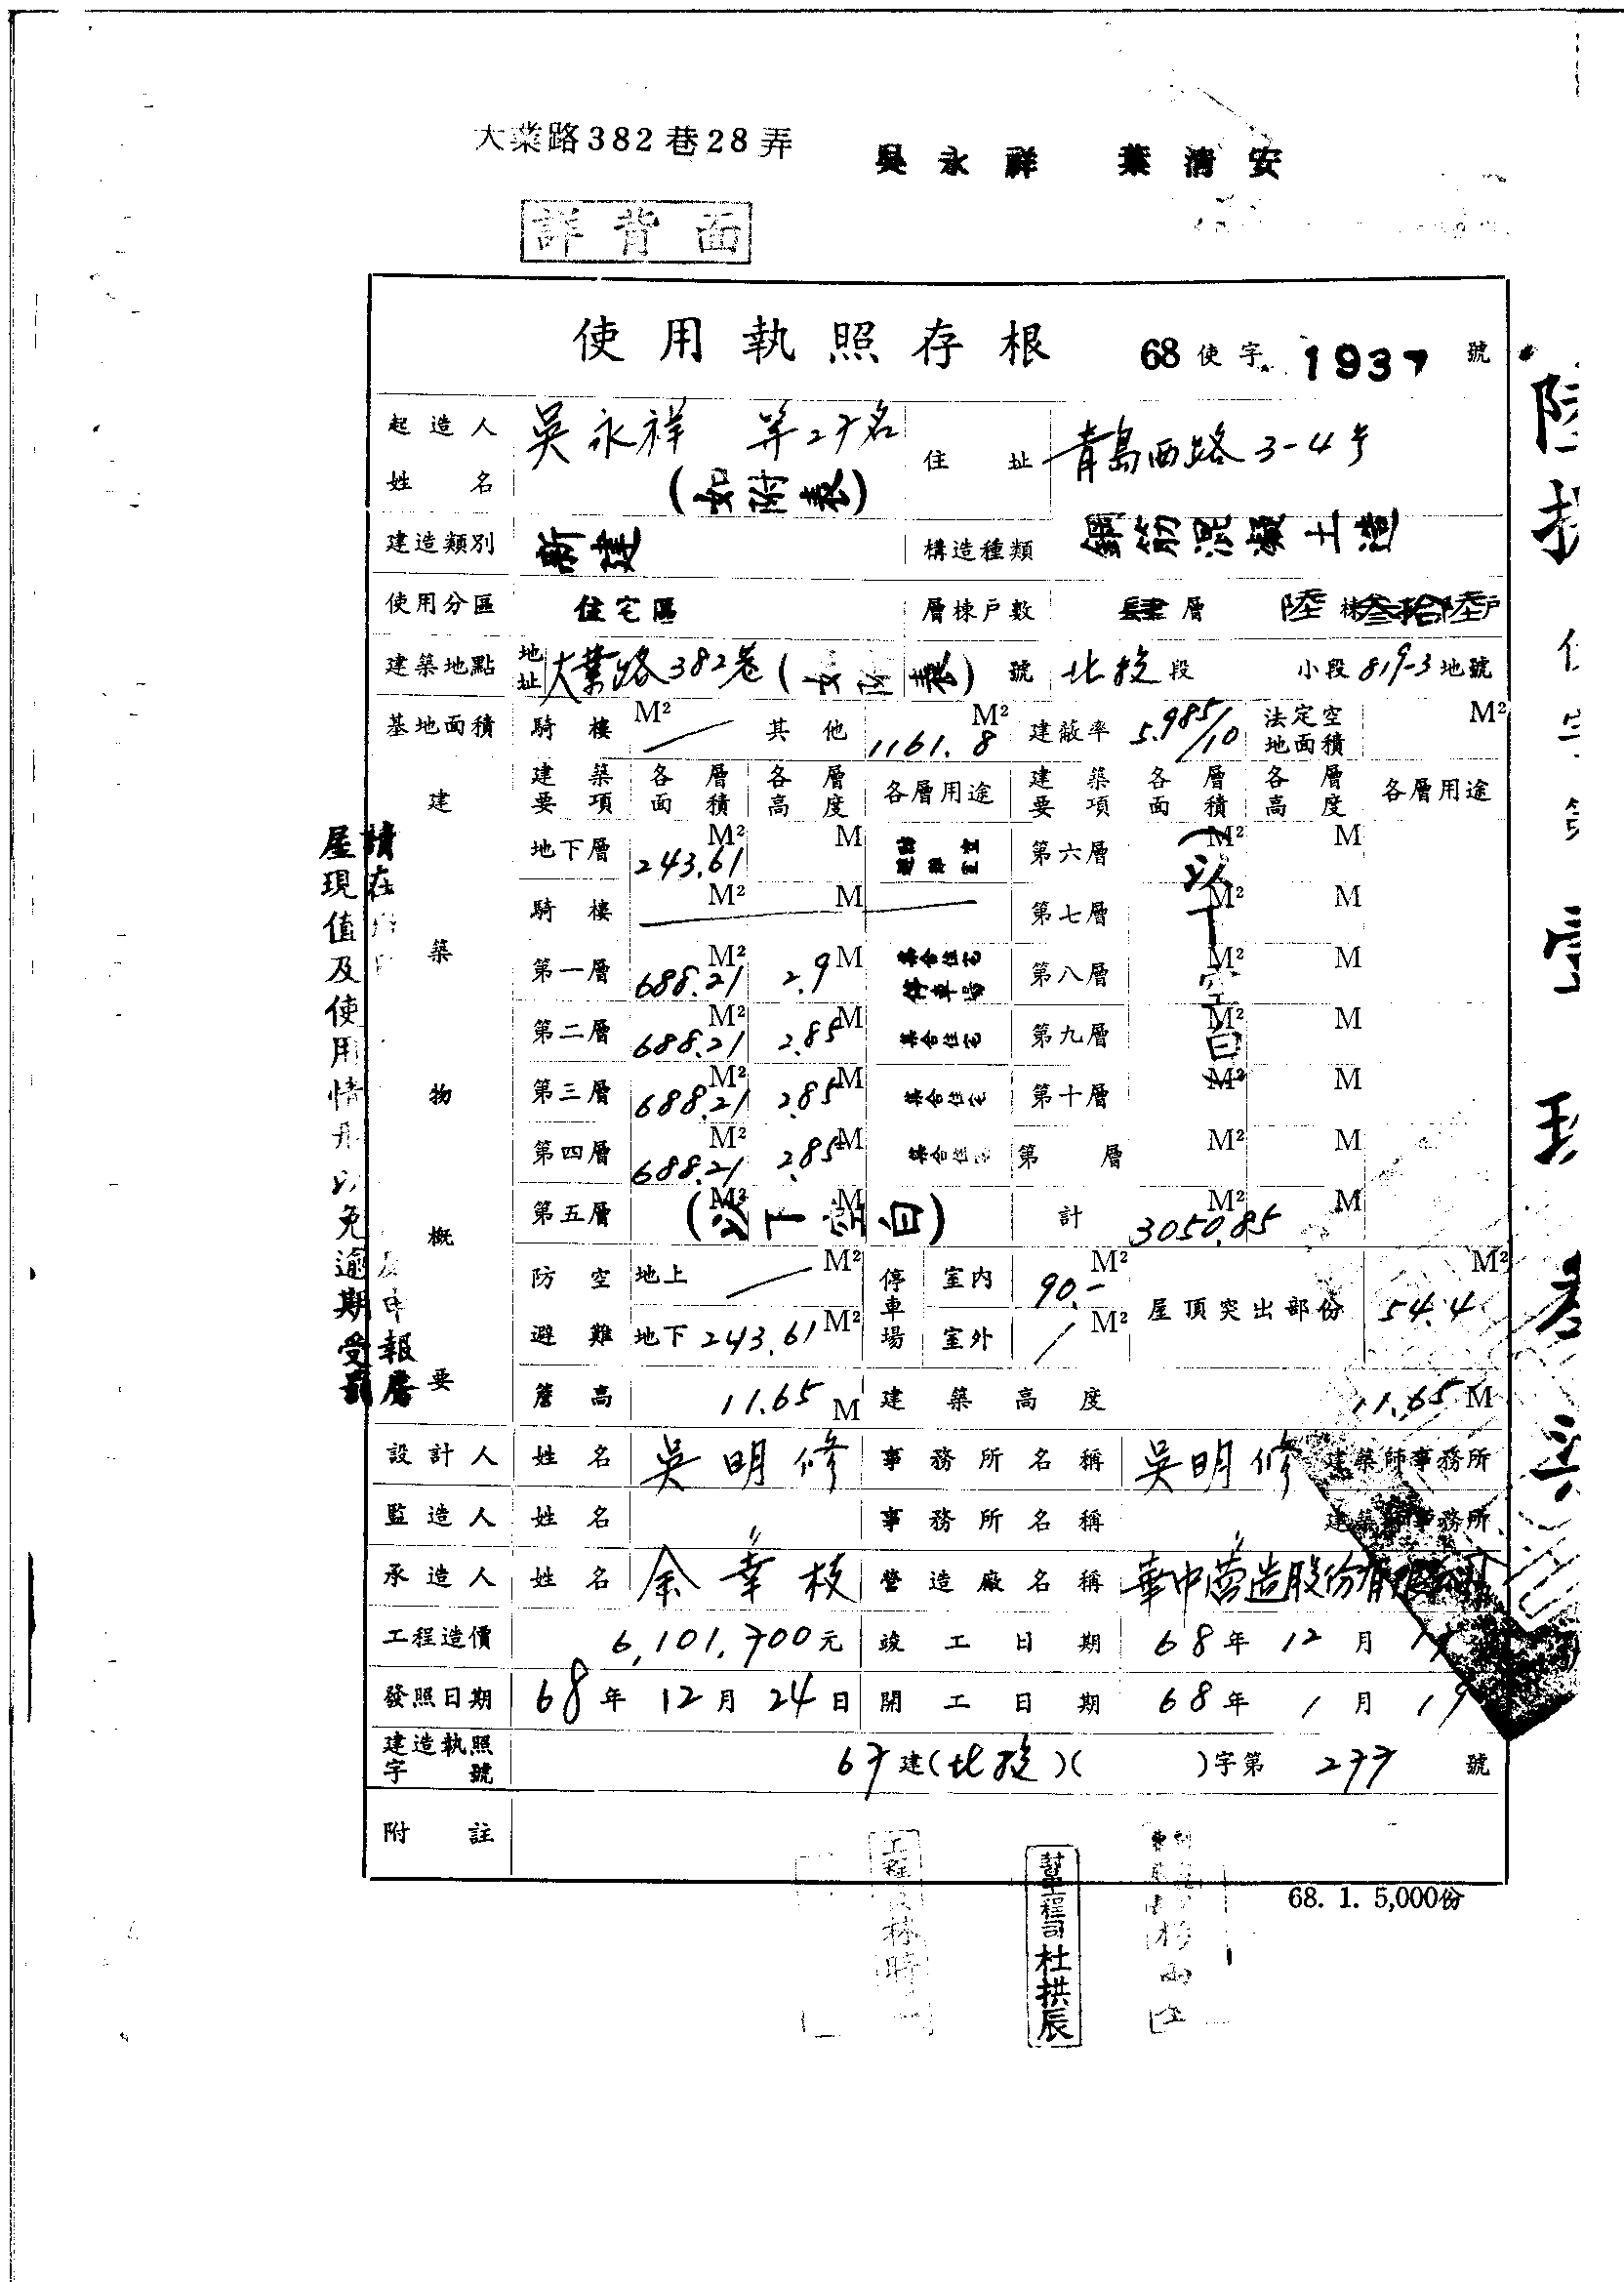 大業路382巷28弄
吳永祥 葉清安
詳背面
使用執照存根 68使字 1937 號
起造人姓名 吳永祥 等27名 (如附表) 住址 青島西路3-4号
建造類別 新建 構造種類 鋼筋混凝土造
使用分區 住宅區 層棟戶數 肆層 陸棟叁拾陸戶
建築地點 地址 大業路382巷(如附表)號 北投段 小段819-3地號
基地面積 騎樓 M² 其他 1161.8 M² 建蔽率 5.985/10 法定空地面積 M²
建築物概要
建築要項 各層面積 各層高度 各層用途 建築要項 各層面積 各層高度 各層用途
地下層 243.61 M² M 第六層 M² M
騎樓 M² M 第七層 M² M
第一層 688.21 M² 2.9 M 集合住宅 停車場 第八層 M² M
第二層 688.21 M² 2.85 M 集合住宅 第九層 M² M
第三層 688.21 M² 2.85 M 集合住宅 第十層 M² M
第四層 688.21 M² 2.85 M 集合住 第 層 M² M
第五層 M² M (以下空白) 計 3050.85 M² M
(以下空白)
防空避難 地上 M² 停車場 室內 90.- M² 屋頂突出部份 54.4 M²
地下 243.61 M² 室外 M²
簷高 11.65 M 建築高度 11.65 M
設計人 姓名 吳明修 事務所名稱 吳明修 建築師事務所
監造人 姓名 〃 事務所名稱 〃 建築師事務所
承造人 姓名 余幸枝 營造廠名稱 華中營造股份有限公司
工程造價 6,101,700元 竣工日期 68年12月
發照日期 68年12月24日 開工日期 68年1月19
建造執照字號 67建(北投)( )字第 277 號
附註
68. 1. 5,000份
幫工程司 杜拱辰
屋現值及使用情形以免逾期受罰